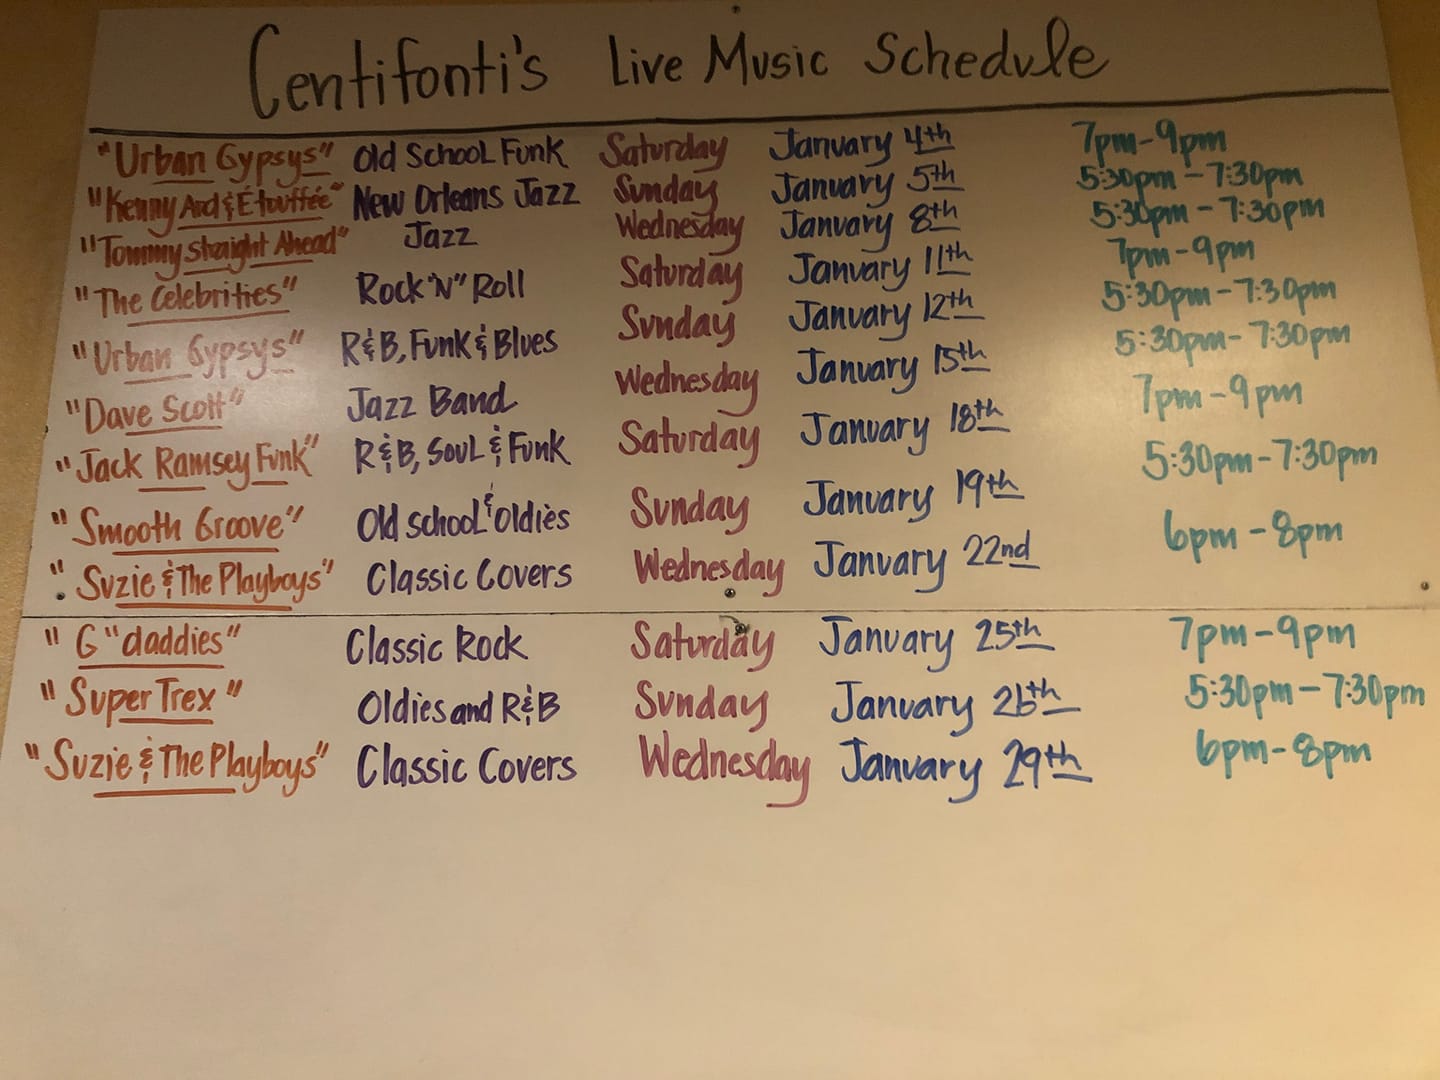 Centifonti's Live Music Schedule
"Urban Gypsys" Old School Funk Saturday January 4th 7pm-9pm
"Kenny Ard & Étouffée" New Orleans Jazz Sunday January 5th 5:30pm-7:30pm
"Tommy Straight Ahead" Jazz Wednesday January 8th 5:30pm-7:30pm
"The Celebrities" Rock "N" Roll Saturday January 11th 7pm-9pm
"Urban Gypsys" R&B, Funk & Blues Sunday January 12th 5:30pm-7:30pm
"Dave Scott" Jazz Band Wednesday January 15th 5:30pm-7:30pm
"Jack Ramsey Funk" R&B, Soul & Funk Saturday January 18th 7pm-9pm
"Smooth Groove" Old School & Oldies Sunday January 19th 5:30pm-7:30pm
"Suzie & The Playboys" Classic Covers Wednesday January 22nd 6pm-8pm
"G"daddies" Classic Rock Saturday January 25th 7pm-9pm
"Super Trex" Oldies and R&B Sunday January 26th 5:30pm-7:30pm
"Suzie & The Playboys" Classic Covers Wednesday January 29th 6pm-8pm